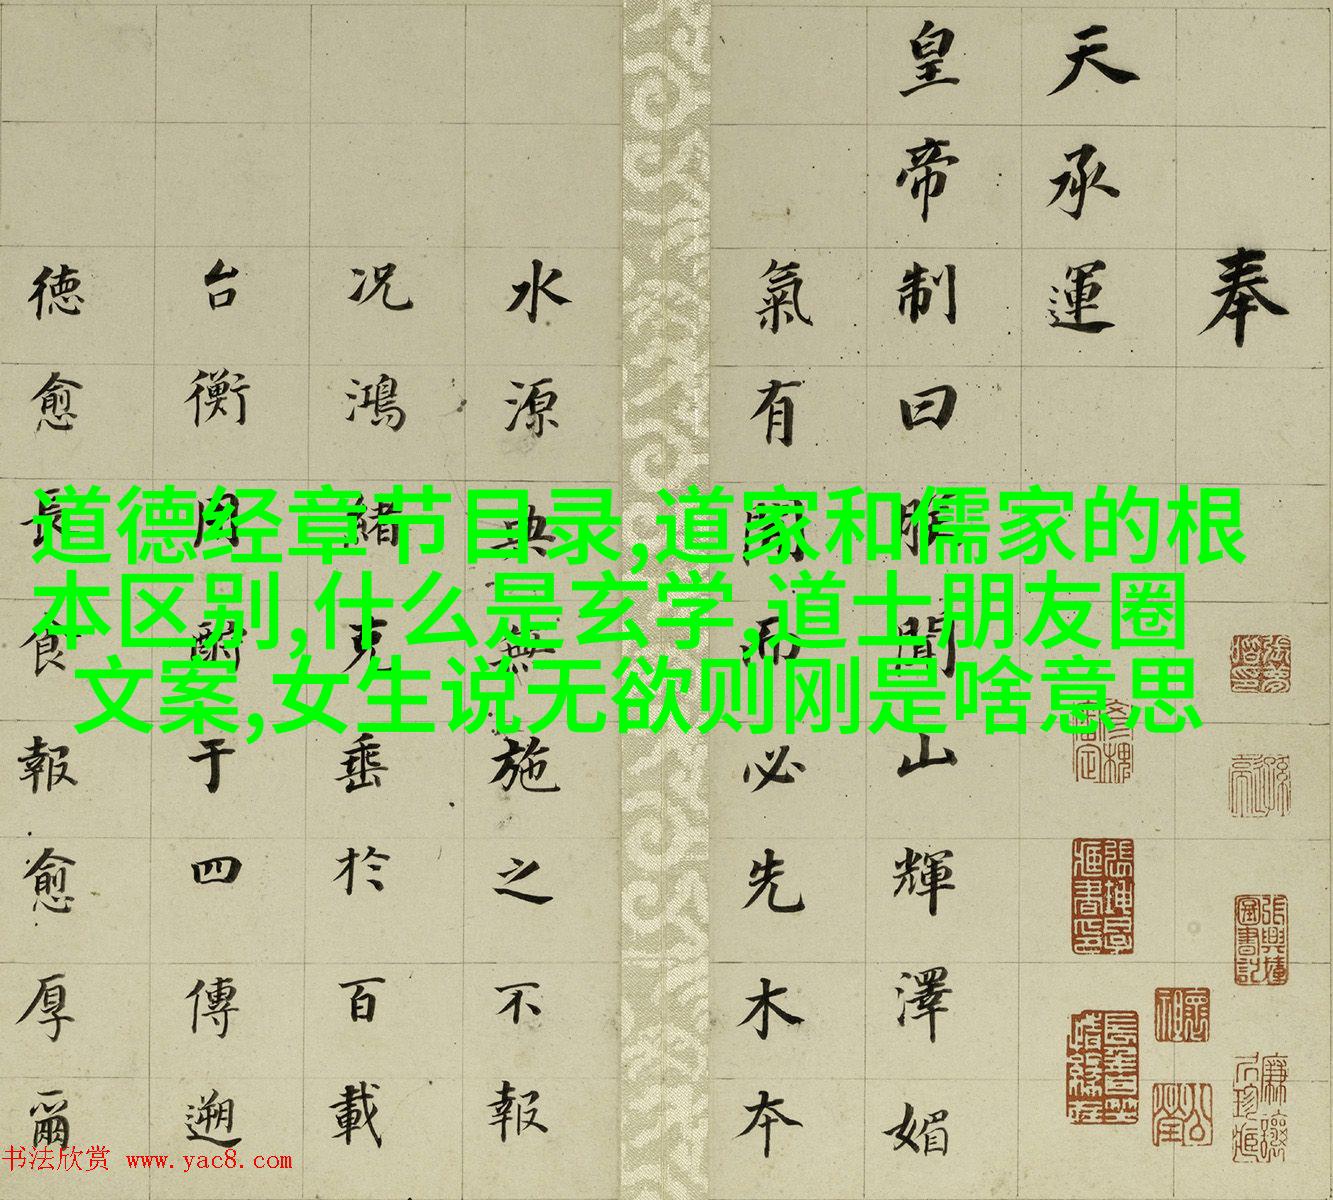 奉
天承運
皇帝制曰朕聞山輝澤媚
氣有開而必先木本
水源典無施之不報
况鴻緒克垂於百載
台衡酬于四傳遡
德愈長食報愈厚爾
道德经章节目录,道家和儒家的根
本区别,什么是玄学,道士朋友圈
文案,女生说无欲则刚是啥意思
书法欣赏 www.yac8.com